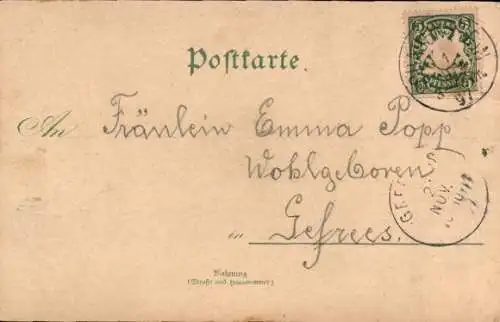 Postkarte.
An Fräulein Emma Popp
Wohlgeboren
in Gefrees.
Wohnung
(Straße und Hausnummer)
NOV.